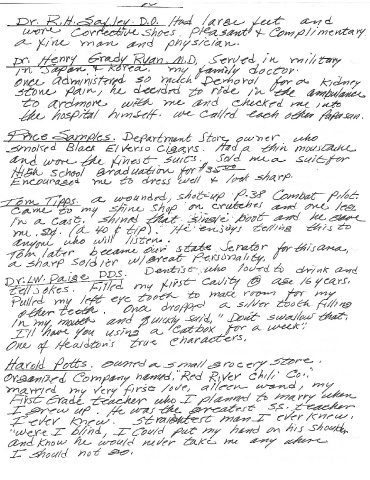 Dr. R.H. Sayley D.O. Had large feet and
wore corrective shoes. Pleasant & Complimentary.
a fine man and physician.
Dr. Henry Grady Ryan M.D. Served in military
in Japan & Korea. my family doctor.
once administered so much Demerol for a kidney
stone pain, he decided to ride in the ambulance
to ardmore, with me and checked me into
the hospital himself. we called each other Papa san.
Price Samples. Department Store owner who
smoked Black Elverso Cigars. Had a thin moustaine
and wore the finest suits. Sold me a suit for
High school graduation for $35.00
Encouraged me to dress well & look sharp.
Tom Tipps. a wounded, shot-up P-38 Combat Pilot.
Came to my shine shop on crutches and one leg
in a cast. Shined that single boot and he gave
me .50 (a 40¢ tip). He enjoys telling this to
anyone who will listen.
Tom later became our state Senator for this area,
a sharp soldier w/great Personality.
Dr. LW. Paige DDS. Dentist who loved to drink and
tell jokes. Filled my first cavity @ age 16 years.
Pulled my left eye tooth to make room for my
other teeth. Once dropped a silver tooth filling
in my mouth and quickly said, "Don't swallow that.
I'll have you using a catbox for a week".
One of Healdton's true characters.
Harold Potts. owned a small grocery store.
Organized Company named, "Red River Chili Co."
married my very first love, alleen wand, my
First Grade teacher who I planned to marry when
I grew up. He was the greatest S.S. teacher
I ever knew. straightest man I ever knew.
"were I blind, I could put my hand on his shoulder
and know he would never take me any where
I should not go.